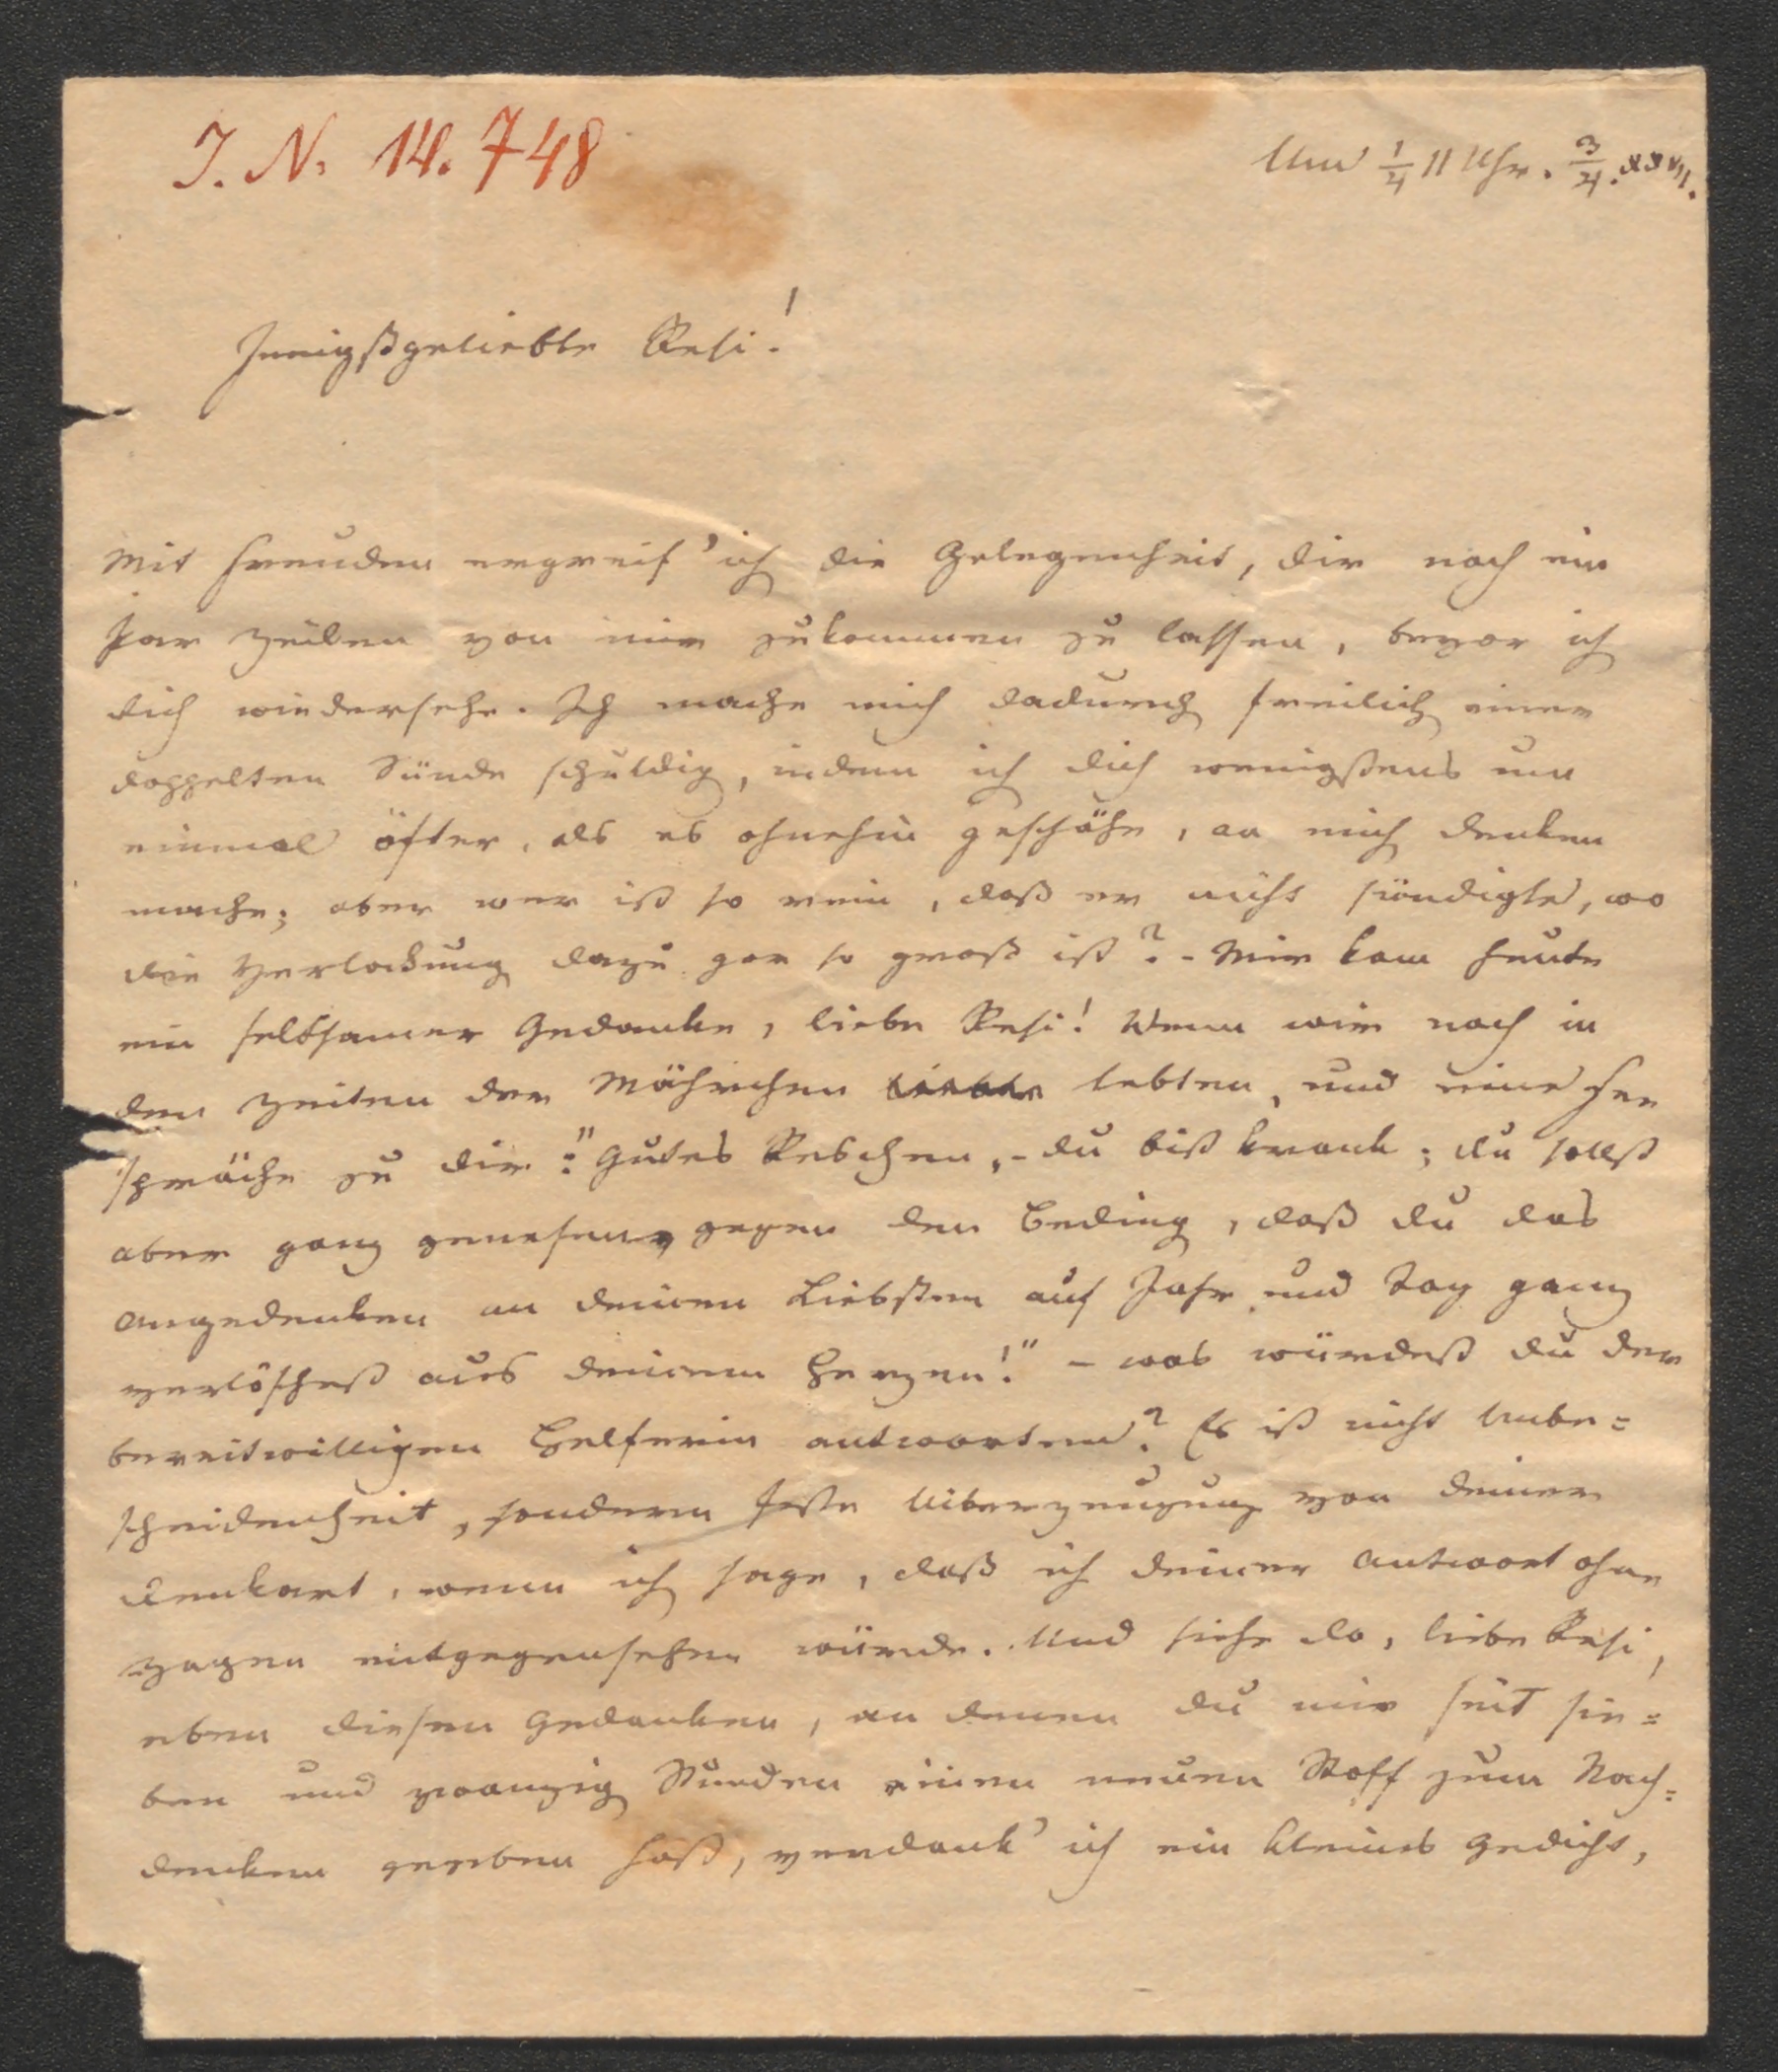 I. N. 14.748
Um 1/4 11 Uhr. 3/4.
Innigstgeliebte Resi!
Mit Freuden ergreif' ich die Gelegenheit, dir noch ein
Par Zeilen von mir zukommen zu lassen, bevor ich
dich wiedersehe. Ich mache mich dadurch freilich einer
doppelten Sünde schuldig, indem ich dich wenigstens um
einmal öfter, als es ohnehin geschähe, an mich denken
mache; aber wer ist so rein, daß er nicht sündigte, wo
die Verlockung dazu gar so groß ist? - Mir kam heute
ein seltsamer Gedanke, liebe Resi! Wenn wir noch in
den Zeiten der Mährchen lebten, und eine Fee
spräche zu dir: "Gutes Reschen, - du bist krank; du sollst
aber ganz genesen, gegen den Beding, daß du das
Angedenken an deinen Liebsten auf Jahr und Tag ganz
verlöschest aus deinem Herzen!" - was würdest du der
bereitwilligen Helferin antworten? Es ist nicht Unbe=
scheidenheit, sondern feste Überzeugung von deiner
Denkart, wenn ich sage, daß ich deiner Antwort ohne
Zagen entgegensehen würde. Und siehe da, liebe Resi,
eben diesen Gedanken, an denen du mir seit sie=
ben und zwanzig Stunden einen neuen Stoff zum Nach=
denken gegeben hast, verdank' ich ein kleines Gedicht,